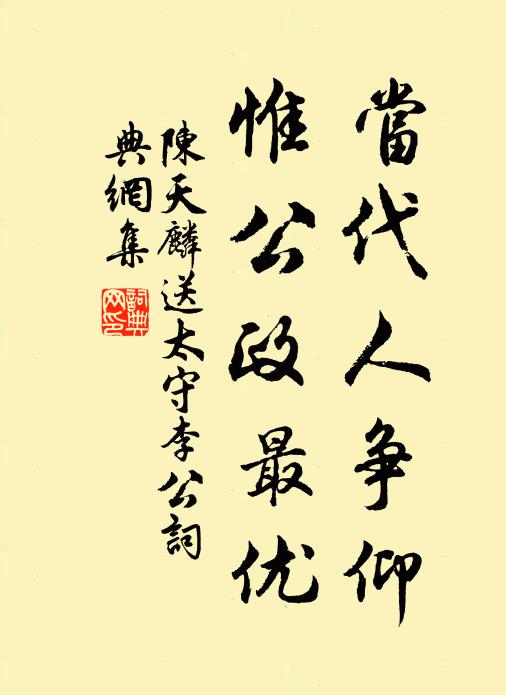 當代人争仰
惟公政最优
陳天麟送太守李公詞
典網集
詞典
网印